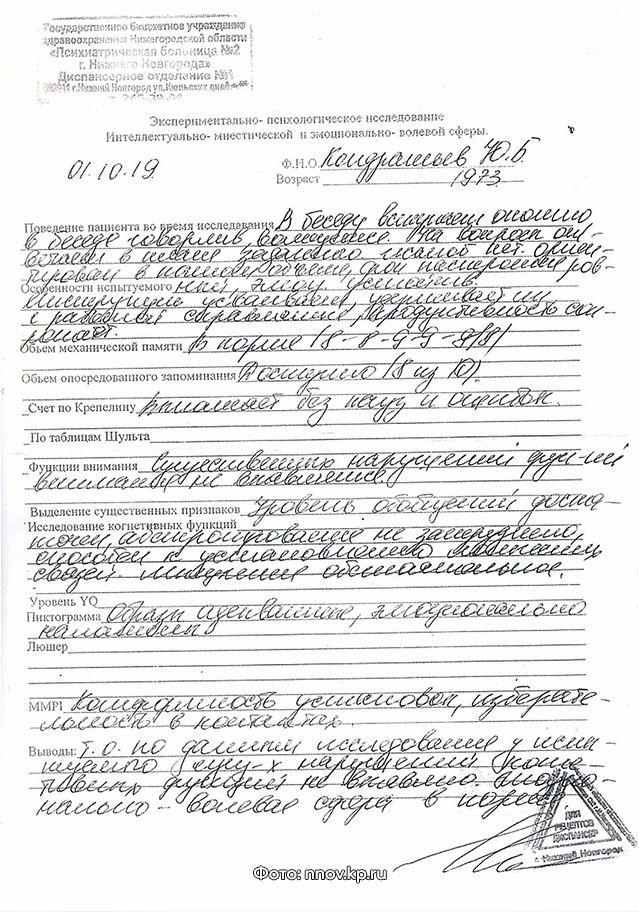 Государственное бюджетное учреждение
здравоохранения Нижегородской области
«Психиатрическая больница №2
г. Нижнего Новгорода»
Диспансерное отделение №1
г. Нижний Новгород ул. Июльских дней
Экспериментально- психологическое исследование
Интеллектуально- мнестической и эмоционально- волевой сферы.
01.10.19
Ф.И.О. Кондратьев Ю.Б
Возраст 1973
Поведение пациента во время исследования В беседу вступает охотно,
в беседе говорлив, На вопросы от-
вечает в плане заданного ориен-
тирован в фон настроения ров-
Особенности испытуемого ный, эмоц. устойчив.
Инструкции усваивает, удерживает их
с работой справляется, продуктивность сох-
раняет.
Объем механической памяти В норме (8-8-9-9-9(8)
Объем опосредованного запоминания Доступно (8 из 10).
Счет по Крепелину выполняет без пауз и ошибок.
По таблицам Шульта
Функции внимания Существенных нарушений функций
внимания не выявлено
Выделение существенных признаков Уровень обобщений доста-
Исследование когнетивных функций
точен, абстрагирование не затруднено,
способен к установлению логических
связей. Мышление обстоятельное.
Уровень YQ
Пиктограмма Образы адекватные, эмоционально
Люшер
MMPI Конформность установок, избирате-
льность в контактах.
Выводы: Т.о. по данным исследования у испы-
туемого сущ-х нарушений когни-
тивных функций не выявлено. Эмоцио-
нально - волевая сфера в норме
ДЛЯ
РЕЦЕПТОВ
ДИСПАНСЕР
г. Нижний Новгород
Фото: nnov.kp.ru